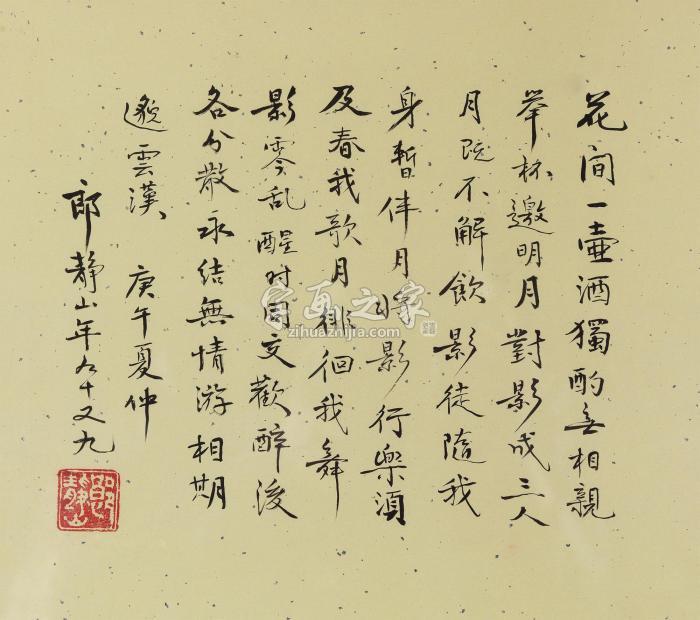 花间一壷酒獨酌无相親
举杯邀明月對影成三人
月既不解飲影徒隨我
身暫伴月将影行樂須
及春我歌月徘徊我舞
影零乱醒时同交歡醉後
各分散永结無情游相期
邈雲漢 庚午夏仲
郎静山年九十又九
郎静山
字画之家
zihuaznijia.com